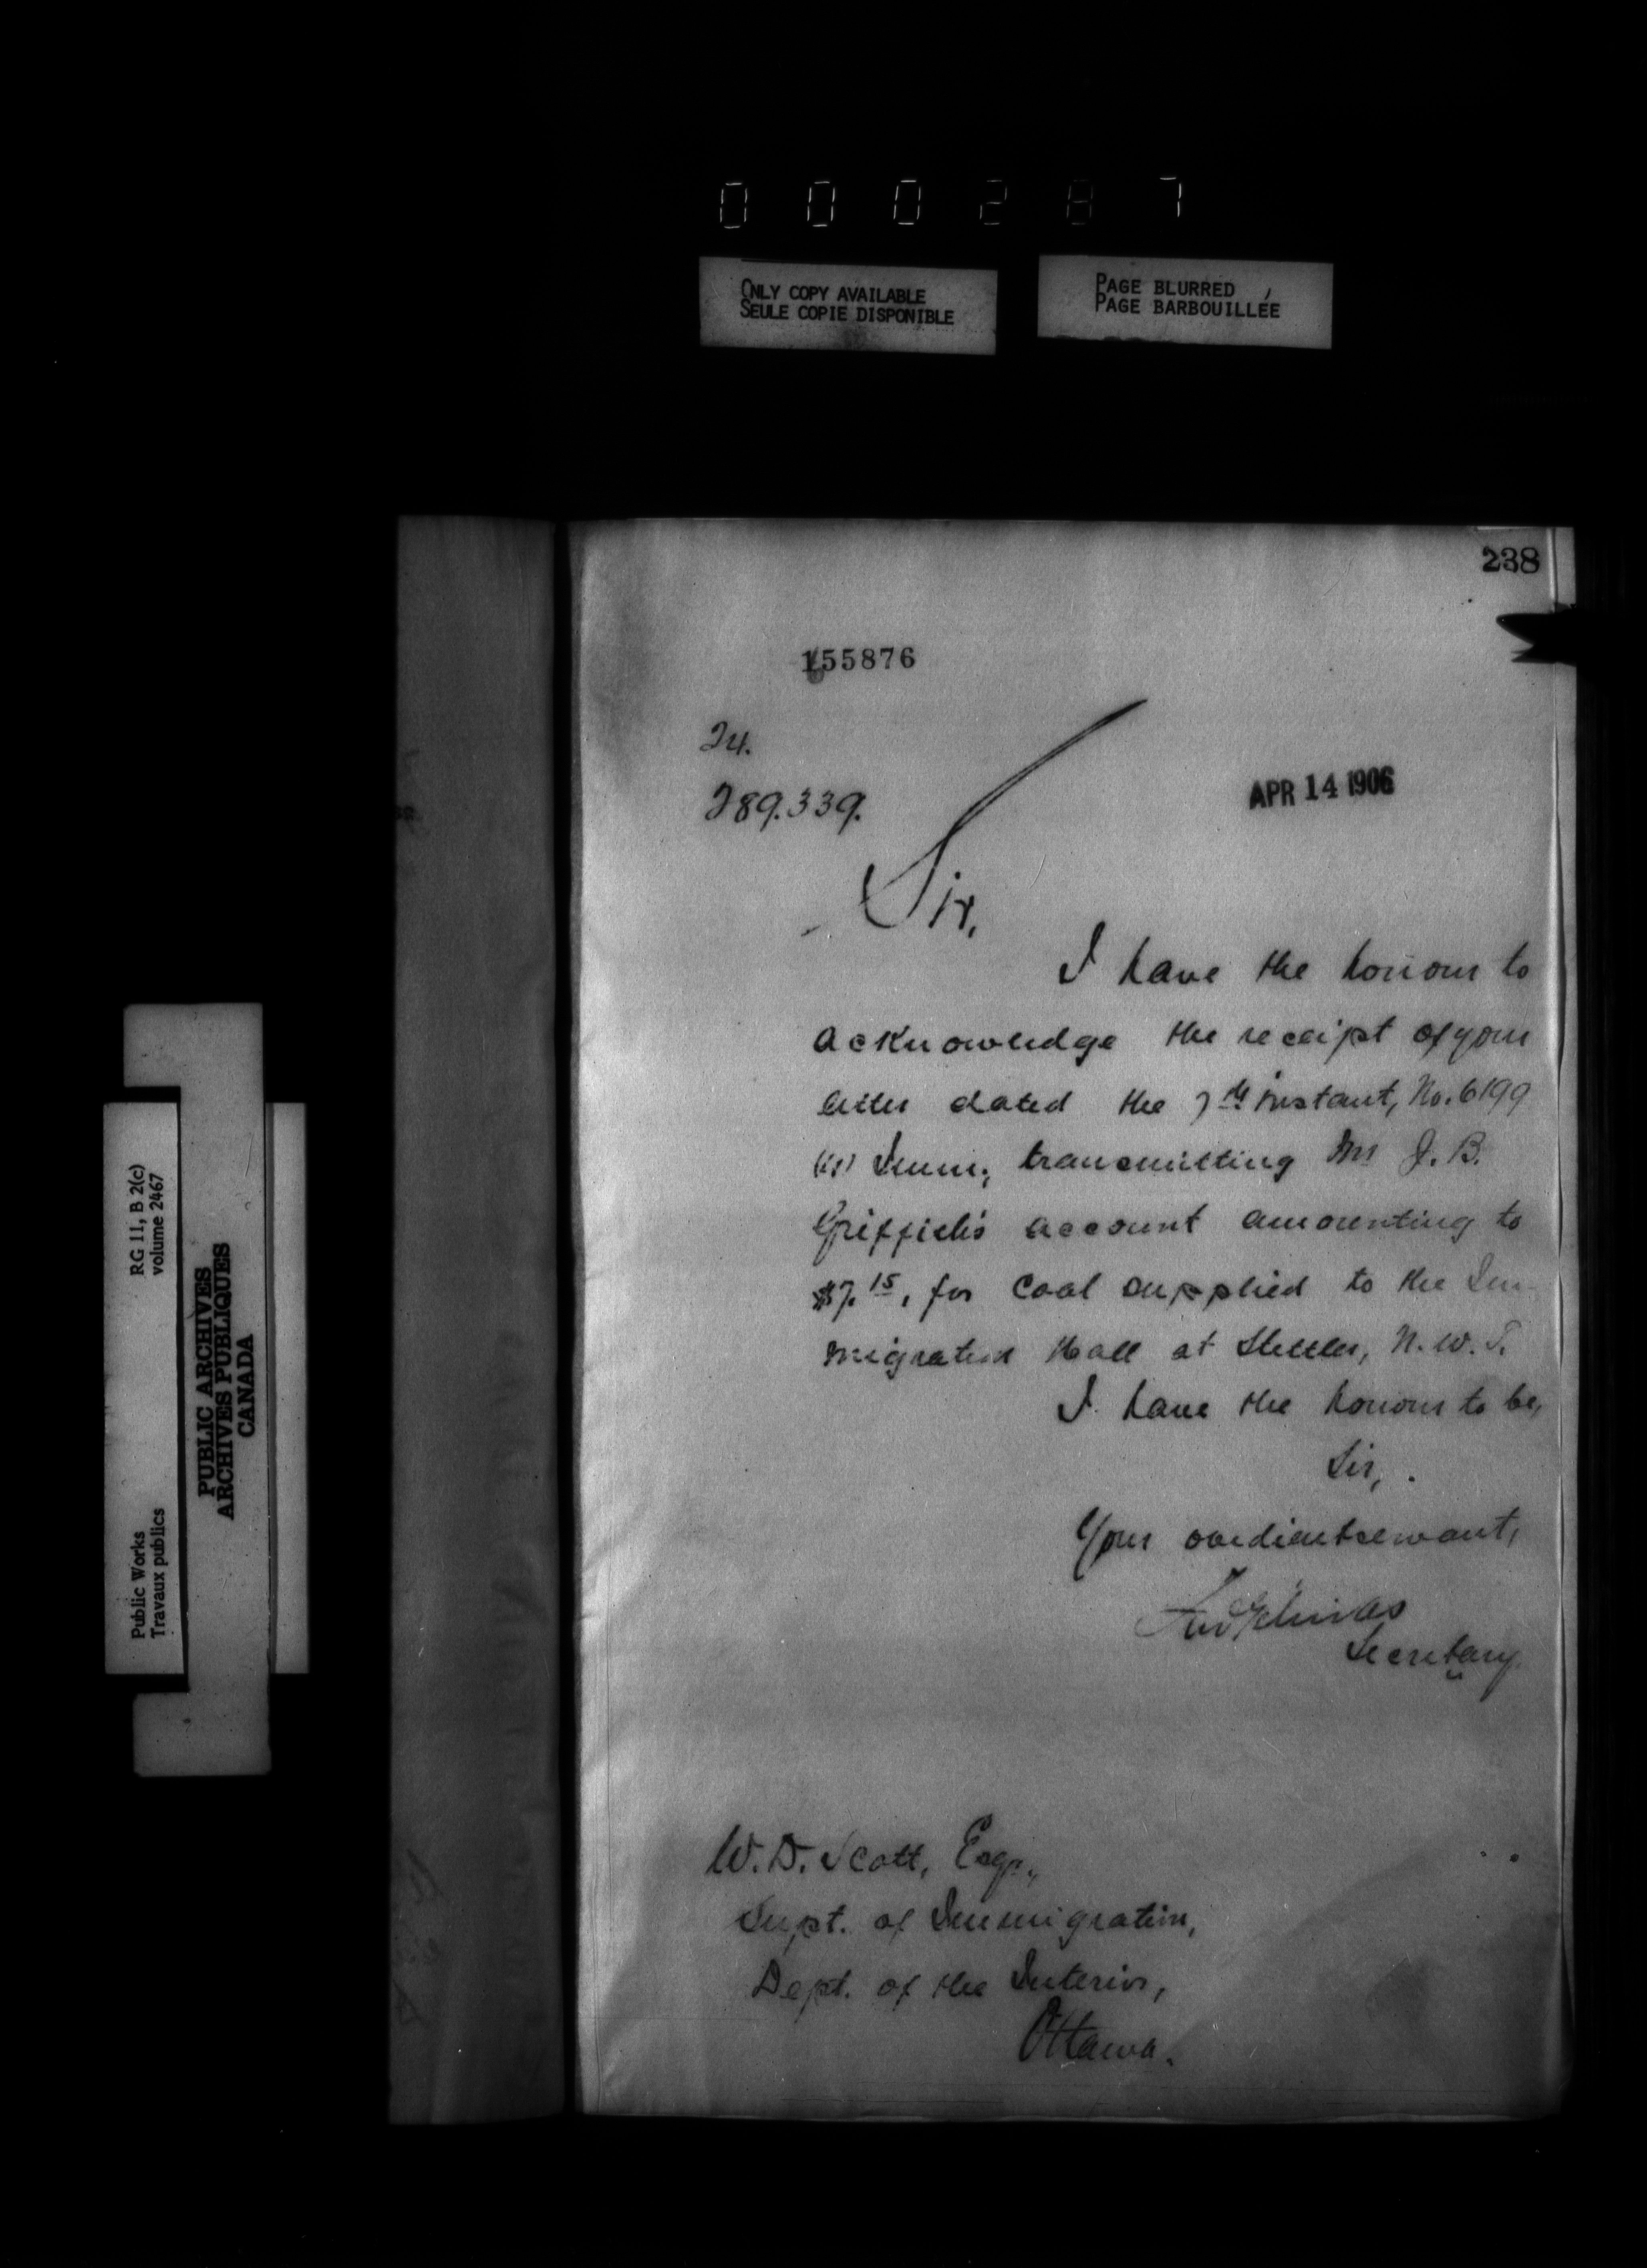 000287
ONLY COPY AVAILABLE
SEULE COPIE DISPONIBLE
PAGE BLURRED
PAGE BARBOUILLÉE
238
155876
24.
289.339.
APR 14 1906
Sir,
I have the honour to
acknowledge the receipt of your
letter dated the 7th instant, No. 6199
Imm; transmitting Mr J. B.
Griffith's account amounting to
$7.15, for coal supplied to the Im-
migration Hall at Stettler, N.W.T.
I have the honour to be,
Sir,
Your obedient servant,
Secretary
W. D. Scott, Esqr.,
Supt. of Immigration,
Dept. of the Interior,
Ottawa.
RG 11, B 2(c)
volume 2467
Public Works
Travaux publics
PUBLIC ARCHIVES
ARCHIVES PUBLIQUES
CANADA